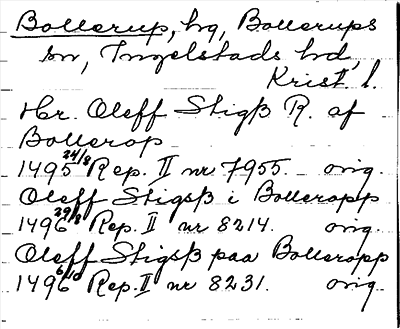 Bollerup, hg, Bollerups
sn, Ingelstads hd,
Krist. l.
Hr. Oleff Stigß R. af
Bollerop
1495 24/8 Rep. II nr 7955. orig.
Oleff Stigsß i Bolleropp
1496 29/2 Rep. II nr 8214. orig.
Oleff Stigsß paa Bolleropp
1496 6/10 Rep. II nr 8231. orig.